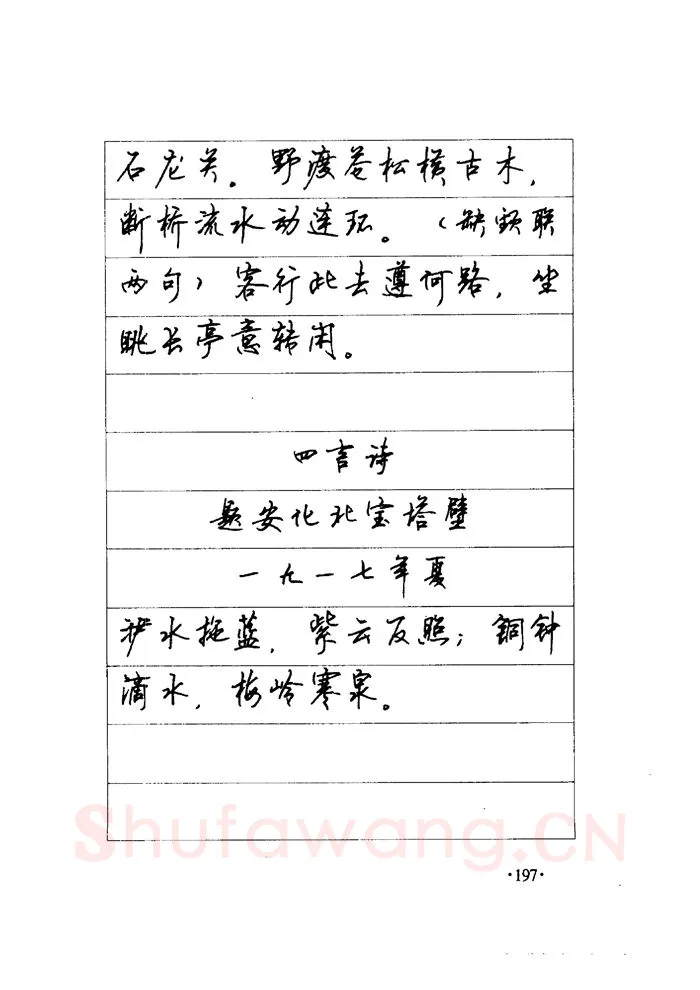 石龙关。野渡苍松横古木,
断桥流水动连环。(缺颈联
两句)客行此去遵何路,坐
眺长亭意转闲。
四言诗
题安化北宝塔壁
一九一七年夏
洢水拖蓝,紫云反照;铜钟
滴水,梅岭寒泉。
Shufawang.CN
·197·